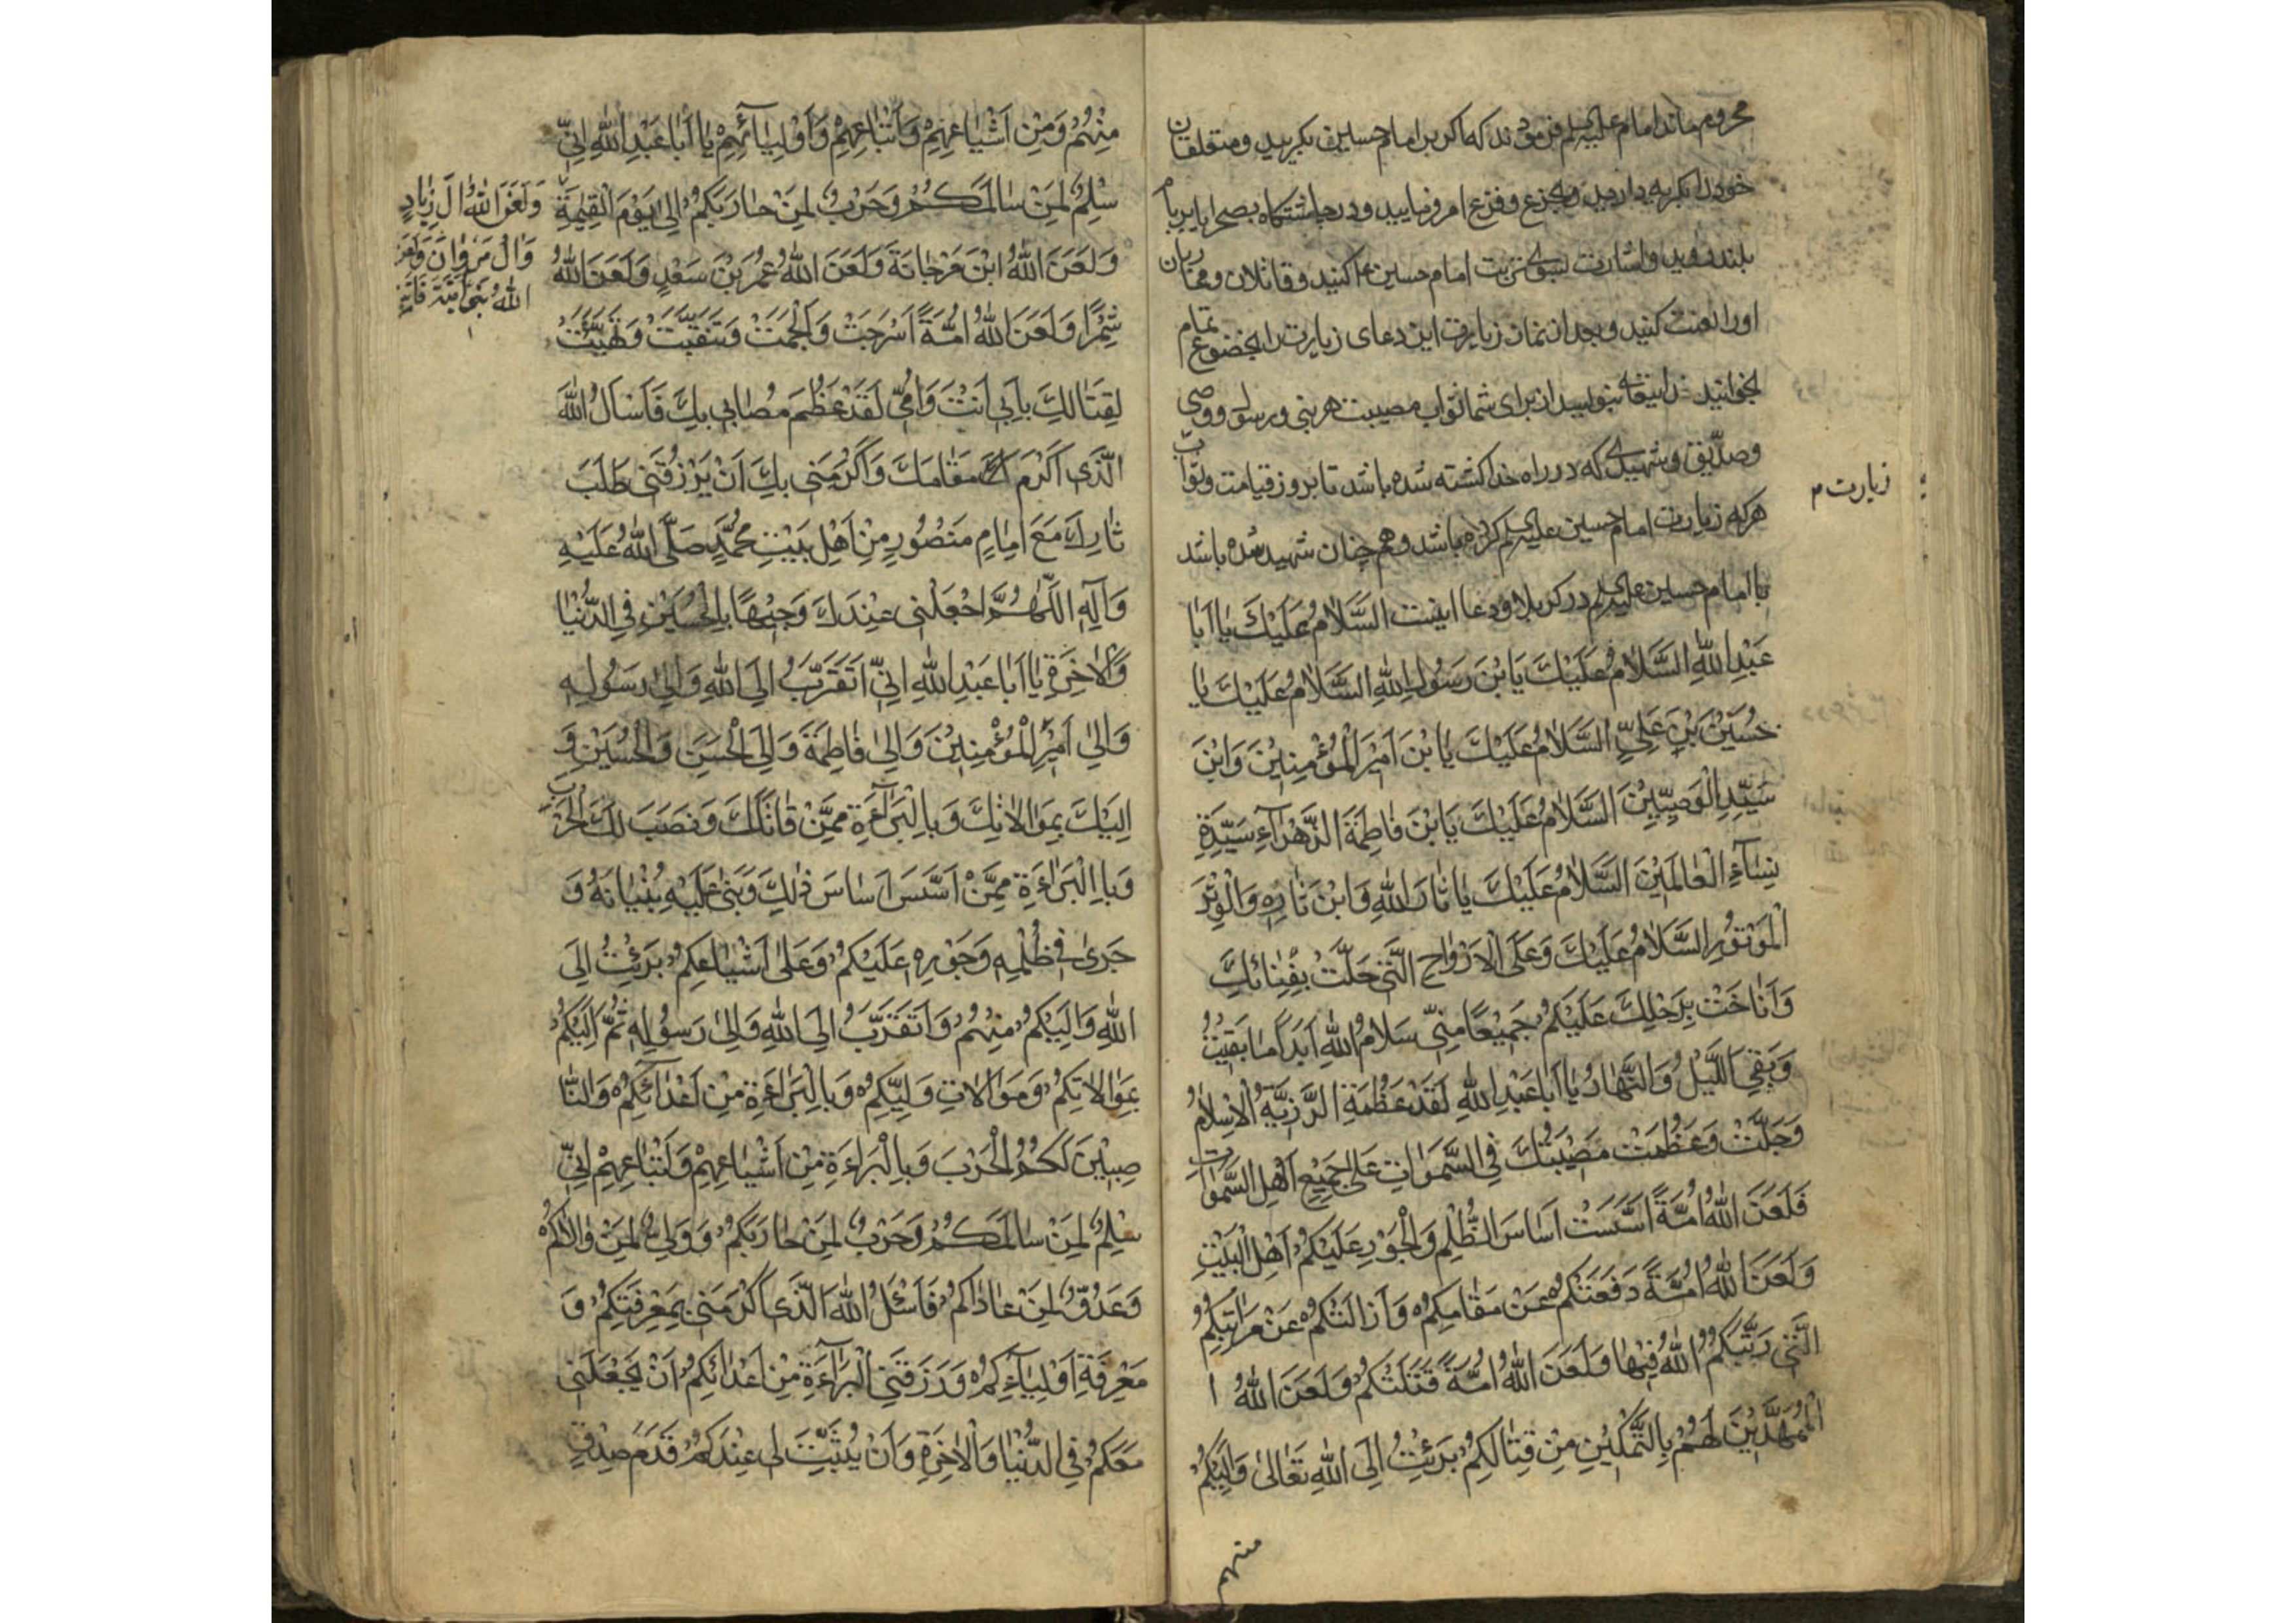 محروم ماند امام علیه السلم فرمودند که اکر بر امام حسین بکریید و متعلقان
خود را بکریه دارید و بجزع و فزع امر نمایید و در چاشتکاه بصحرا یا بر بام
بلند روید و اشارت بسوی تربت امام حسین ع کنید و قاتلان و محاربان
او را لعنت کنید و بعد از نماز زیارت این دعای زیارت را بخضوع تمام
بخوانید بنویسد از برای شما ثواب مصیبت هر نبی و رسول و وصی
و صدّیق و شهیدی که در راه خدا کشته شده باشد تا بروز قیامت و ثواب
هر که زیارت امام حسین علیه السلم کرده باشد و هم چنان شهید شده باشد
زیارت م
با امام حسین علیه السلم در کربلا و دعا اینست السَّلَامُ عَلَیْكَ یَا اَبَا
عَبْدِ اللّٰهِ السَّلَامُ عَلَیْكَ یَا بْنَ رَسُولِ اللّٰهِ السَّلَامُ عَلَیْكَ یَا
حُسَیْنَ بْنِ عَلِیٍّ السَّلَامُ عَلَیْكَ یَا بْنَ اَمِیْرِ الْمُؤْمِنِیْنَ وَابْنَ
سَیِّدِ الْوَصِیِّیْنَ السَّلَامُ عَلَیْكَ یَابْنَ فَاطِمَةَ الزَّهْرَآءِ سَیِّدَةِ
نِسَآءِ الْعَالَمِیْنَ السَّلَامُ عَلَیْكَ یَا ثَارَ اللّٰهِ وَابْنَ ثَارِهِ وَالْوِتْرَ
الْمَوْتُوْرِ السَّلَامُ عَلَیْكَ وَعَلَی الْاَرْوَاحِ الَّتِی حَلَّتْ بِفِنَائِكَ
وَاَنَاخَتْ بِرَحْلِكَ عَلَیْكُمْ جَمِیْعًا مِنِّی سَلَامُ اللّٰهِ اَبَدًا مَا بَقِیْتُ
وَبَقِیَ اللَّیْلُ وَالنَّهَارُ یَا اَبَا عَبْدِ اللّٰهِ لَقَدْ عَظُمَةِ الرَّزِیَّةِ الْاِسْلَامُ
وَجَلَّتْ وَعَظُمَتْ مَصِیْبَتُكَ فِی السَّمٰوَاتِ عَلٰی جَمِیْعِ اَهْلِ السَّمٰوَات
فَلَعَنَ اللّٰهُ اُمَّةً اَسَّسَتْ اَسَاسَ الظُّلْمِ وَالْجَوْرِ عَلَیْكُمْ اَهْلَ الْبَیْتِ
وَلَعَنَ اللّٰهُ اُمَّةً دَفَعَتْكُمْ عَنْ مَقَامِكُمْ وَاَزَالَتْكُمْ عَنْ مَرَاتِبِكُمُ
الَّتِی رَتَّبَكُمُ اللّٰهُ فِیْهَا وَلَعَنَ اللّٰهُ اُمَّةً قَتَلَتْكُمْ وَلَعَنَ اللّٰهُ ا
الْمُمَهِّدِیْنَ لَهُمْ بِالتَّمْكِیْنِ مِنْ قِتَالِكُمْ بَرِئْتُ اِلَی اللّٰهِ تَعَالٰی وَاِلَیْكُمْ
منهم
مِنْهُمْ وَمِنْ اَشْیَاعِهِمْ وَاَتْبَاعِهِمْ وَاَوْلِیَائِهِمْ یَا اَبَا عَبْدِ اللّٰهِ اِنِّی
سِلْمٌ لِمَنْ سَالَمَكُمْ وَحَرْبٌ لِمَنْ حَارَبَكُمْ اِلٰی یَوْمِ الْقِیٰمَةِ
وَلَعَنَ اللّٰهُ اٰلَ زِیَادٍ
وَاٰلَ مَرْوَانَ وَلَعَنَ
اللّٰهُ بَنِی اُمَیَّةَ
وَلَعَنَ اللّٰهُ ابْنَ مَرْجَانَةَ وَلَعَنَ اللّٰهُ عُمَرَ بْنَ سَعْدٍ وَلَعَنَ اللّٰهُ
شِمْرًا وَلَعَنَ اللّٰهُ اُمَّةً اَسْرَجَتْ وَاَلْجَمَتْ وَتَنَقَّبَتْ وَتَهَیَّئَتْ
لِقِتَالِكَ بِاَبِی اَنْتَ وَاُمِّی لَقَدْ عَظُمَ مُصَابِی بِكَ فَاَسْاَلُ اللّٰهَ
الَّذِی اَكْرَمَ مَقَامَكَ وَاَكْرَمَنِی بِكَ اَنْ یَرْزُقَنِی طَلَبَ
ثَارِكَ مَعَ اِمَامٍ مَنْصُوْرٍ مِنْ اَهْلِ بَیْتِ مُحَمَّدٍ صَلَّی اللّٰهُ عَلَیْهِ
وَاٰلِهِ اللّٰهُمَّ اجْعَلْنِی عِنْدَكَ وَجِیْهًا بِالْحُسَیْنِ فِی الدُّنْیَا
وَالْاٰخِرَةِ یَا اَبَا عَبْدِ اللّٰهِ اِنِّی اَتَقَرَّبُ اِلَی اللّٰهِ وَاِلٰی رَسُولِهِ
وَاِلٰی اَمِیْرِ الْمُؤْمِنِیْنَ وَاِلٰی فَاطِمَةَ وَاِلَی الْحَسَنِ وَالْحُسَیْنِ وَ
اِلَیْكَ بِمَوَالَاتِكَ وَبِالْبَرَآءَةِ مِمَّنْ قَاتَلَكَ وَنَصَبَ لَكَ الْحَرْبَ
وَبِالْبَرَاءَةِ مِمَّنْ اَسَّسَ اَسَاسَ ذٰلِكَ وَبَنٰی عَلَیْهِ بُنْیَانَهُ وَ
جَرٰی فِی ظُلْمِهِ وَجَوْرِهِ عَلَیْكُمْ وَعَلٰی اَشْیَاعِكُمْ بَرِئْتُ اِلَی
اللّٰهِ وَاِلَیْكُمْ مِنْهُمْ وَاَتَقَرَّبُ اِلَی اللّٰهِ وَاِلٰی رَسُوْلِهِ ثُمَّ اِلَیْكُمْ
بِمَوَالَاتِكُمْ وَمَوَالَاتِ وَلِیِّكُمْ وَبِالْبَرَاءَةِ مِنْ اَعْدَائِكُمْ وَالنَّا
صِبِیْنَ لَكُمُ الْحَرْبَ وَبِالْبَرَاءَةِ مِنْ اَشْیَاعِهِمْ وَاَتْبَاعِهِمْ اِنِّی
سِلْمٌ لِمَنْ سَالَمَكُمْ وَحَرْبٌ لِمَنْ حَارَبَكُمْ وَوَلِیٌّ لِمَنْ وَالَاكُمْ
وَعَدُوٌّ لِمَنْ عَادَاكُمْ فَاَسْئَلُ اللّٰهَ الَّذِی اَكْرَمَنِی بِمَعْرِفَتِكُمْ وَ
مَعْرِفَةِ اَوْلِیَآءِكُمْ وَرَزَقَنِی الْبَرَآءَةَ مِنْ اَعْدَائِكُمْ اَنْ یَجْعَلَنِی
مَعَكُمْ فِی الدُّنْیَا وَالْاٰخِرَةِ وَاَنْ یُثَبِّتَ لِی عِنْدَكُمْ قَدَمَ صِدْقٍ